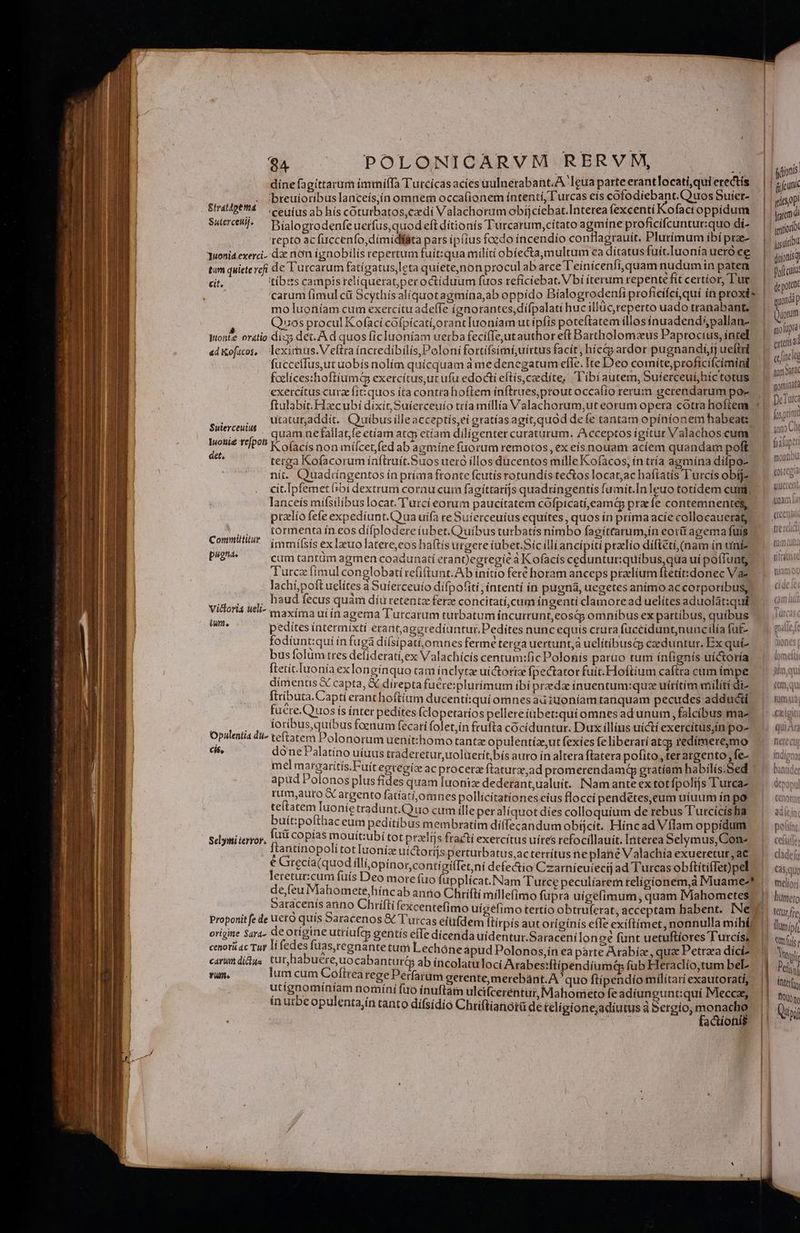 84 POLONICARVM RERVM,
dine sagittarum immissa Turcicas acies uulnerabant. A leua parte erant locati, qui erectis
breuioribus lanceis, in omnem occasionem intenti, Turcas eis cõfodiebant. Quos Suier-
Stratagema Suierceuij.
ceuius ab his cõturbatos, cædi Valachorum obijciebat. Interea sexcenti Kofaci oppidum
Bialogrodense uersus, quod est ditionis Turcarum, citato agmine proficiscuntur: quo di-
repto ac succenso, dimidiata pars ipsius fœdo incendio conflagrauit. Plurimum ibi præ-
Iuonia exerci- tum quiete refi cit.
dæ non ignobilis repertum fuit: qua militi obiecta, multum ea ditatus fuit. Iuonia uerò ce
de Turcarum fatigatus, leta quiete, non procul ab arce Teinicensi, quam nudum in paten
tibus campis reliquerat, per octiduum suos reficiebat. Vbi iterum repente fit certior, Tur
carum simul cũ Scythis aliquot agmina, ab oppido Bialogrodensi proficisci, qui in proxi-
mo Iuoniam cum exercitu adesse ignorantes, dispalati huc illuc, reperto uado tranabant.
Quos procul Kofaci cõspicati, orant Iuoniam ut ipsis potestatem illos inuadendi, pallan-
Iuoniæ oratio ad Kofacos.
diq; det. Ad quos sic Iuoniam uerba fecisse, ut author est Bartholomæus Paprocius, intel
leximus. Vestra incredibilis, Poloni fortissimi, uirtus facit, hicq; ardor pugnandi, ij uestri
successus, ut uobis nolim quicquam à me denegatum esse. Ite Deo comite, proficiscimini
fœlices: hostiumq; exercitus, ut usu edocti estis, cædite. Tibi autem, Suierceui, hic totus
exercitus curæ sit: quos ita contra hostem instrues, prout occasio rerum gerendarum po-
stulabit. Hæc ubi dixit, Suierceuio tria millia Valachorum, ut eorum opera cõtra hostem
Suierceuius Iuoniæ respon det.
utatur, addit. Quibus ille acceptis, ei gratias agit, quòd de se tantam opinionem habeat:
quam ne fallat, se etiam atq; etiam diligenter curaturum. Acceptos igitur Valachos cum
Kofacis non miscet, sed ab agmine suorum remotos, ex eis nouam aciem quandam post
terga Kofacorum instruit. Suos uerò illos ducentos mille Kofacos, in tria agmina dispo-
nit. Quadringentos in prima fronte scutis rotundis tectos locat, ac hastatis Turcis obij-
cit. Ipsemet sibi dextrum cornu cum sagittarijs quadringentis sumit. In leuo totidem cum
lanceis missilibus locat. Turci eorum paucitatem cõspicati, eamq; præ se contemnentes,
prælio sese expediunt. Qua uisa re Suierceuius equites, quos in prima acie collocauerat,
Committitur pugna.
tormenta in eos displodere iubet. Quibus turbatis nimbo sagittarum, in eorũ agema suis
immissis ex læuo latere, eos hastis urgere iubet. Sic illi ancipiti prælio districti, (nam in uni-
cum tantùm agmen coadunati erant) egregiè à Kofacis ceduntur: quibus, qua ui possunt,
Turcæ simul conglobati resistunt. Ab initio ferè horam anceps prælium stetit: donec Va-
lachi, post uelites à Suierceuio dispositi, intenti in pugnã, uegetes animo ac corporibus,
Victoria ueli- tum.
haud secus quàm diu retentæ feræ concitati, cum ingenti clamore ad uelites aduolãt: qui
maxima ui in agema Turcarum turbatum incurrunt, eosq; omnibus ex partibus, quibus
pedites intermixti erant, aggrediuntur. Pedites nunc equis crura succidunt, nunc ilia suf-
fodiunt: qui in fugã dissipati, omnes fermè terga uertunt, à uelitibusq; cæduntur. Ex qui-
bus solùm tres desiderati, ex Valachicis centum: sic Polonis paruo tum insignis uictoria
stetit. Iuonia ex longinquo tam inclytæ uictoriæ spectator fuit. Hostium castra cum impe
dimentis & capta, & direpta fuêre: plurimum ibi prædæ inuentum: quæ uiritim militi di-
stributa. Capti erant hostium ducenti: qui omnes ad Iuoniam tanquam pecudes adducti
fuêre. Quos is inter pedites sclopetarios pellere iubet: qui omnes ad unum, falcibus ma-
ioribus, quibus fœnum secari solet, in frusta cõciduntur. Dux illius uicti exercitus, in po-
Opulentia du- cis.
testatem Polonorum uenit: homo tantæ opulentiæ, ut sexies se liberari atq; redimere, mo
dò ne Palatino uiuus traderetur, uoluerit, bis auro in altera statera posito, ter argento, se-
mel margaritis. Fuit egregiæ ac proceræ staturæ, ad promerendamq; gratiam habilis. Sed
apud Polonos plus fides quam Iuoniæ dederant, ualuit. Nam ante ex tot spolijs Turca-
rum, auro & argento satiati, omnes pollicitationes eius flocci pendẽtes, eum uiuum in po
testatem Iuoniæ tradunt. Quo cum ille per aliquot dies colloquium de rebus Turcicis ha
buit: posthac eum peditibus membratim dissecandum obijcit. Hinc ad Vslam oppidum
Selymi terror.
suũ copias mouit: ubi tot prælijs fracti exercitus uires refocillauit. Interea Selymus, Con-
stantinopoli tot Iuoniæ uictorijs perturbatus, ac territus ne planè Valachia exueretur, ac
è Græcia (quod illi, opinor, contigisset, ni defectio Czarnieuiecij ad Turcas obstitisset) pel
leretur: cum suis Deo more suo supplicat. Nam Turcę peculiarem religionem, à Muame-
de, seu Mahomete, hinc ab anno Christi millesimo supra uigesimum, quam Mahometes
Saracenis anno Christi sexcentesimo uigesimo tertio obtruserat, acceptam habent. Ne
Proponit se de origine Sara- cenorũ ac Tur carum dictu- rum.
uerò quis Saracenos & Turcas eiusdem stirpis aut originis esse existimet, nonnulla mihi
de origine utriusq; gentis esse dicenda uidentur. Saraceni longè sunt uetustiores Turcis,
li sedes suas, regnante tum Lechône apud Polonos, in ea parte Arabiæ, quæ Petræa dici-
tur, habuêre, uocabanturq; ab incolatu loci Arabes: stipendiumq; sub Heraclio, tum bel-
lum cum Costrea rege Persarum gerente, merebãnt. A quo stipendio militari exautorati,
ut ignominiam nomini suo inustam ulciscerentur, Mahometo se adiungunt: qui Meccæ,
in urbe opulenta, in tanto dissidio Christianorũ de religione, adiutus à Sergio, monacho
factionis